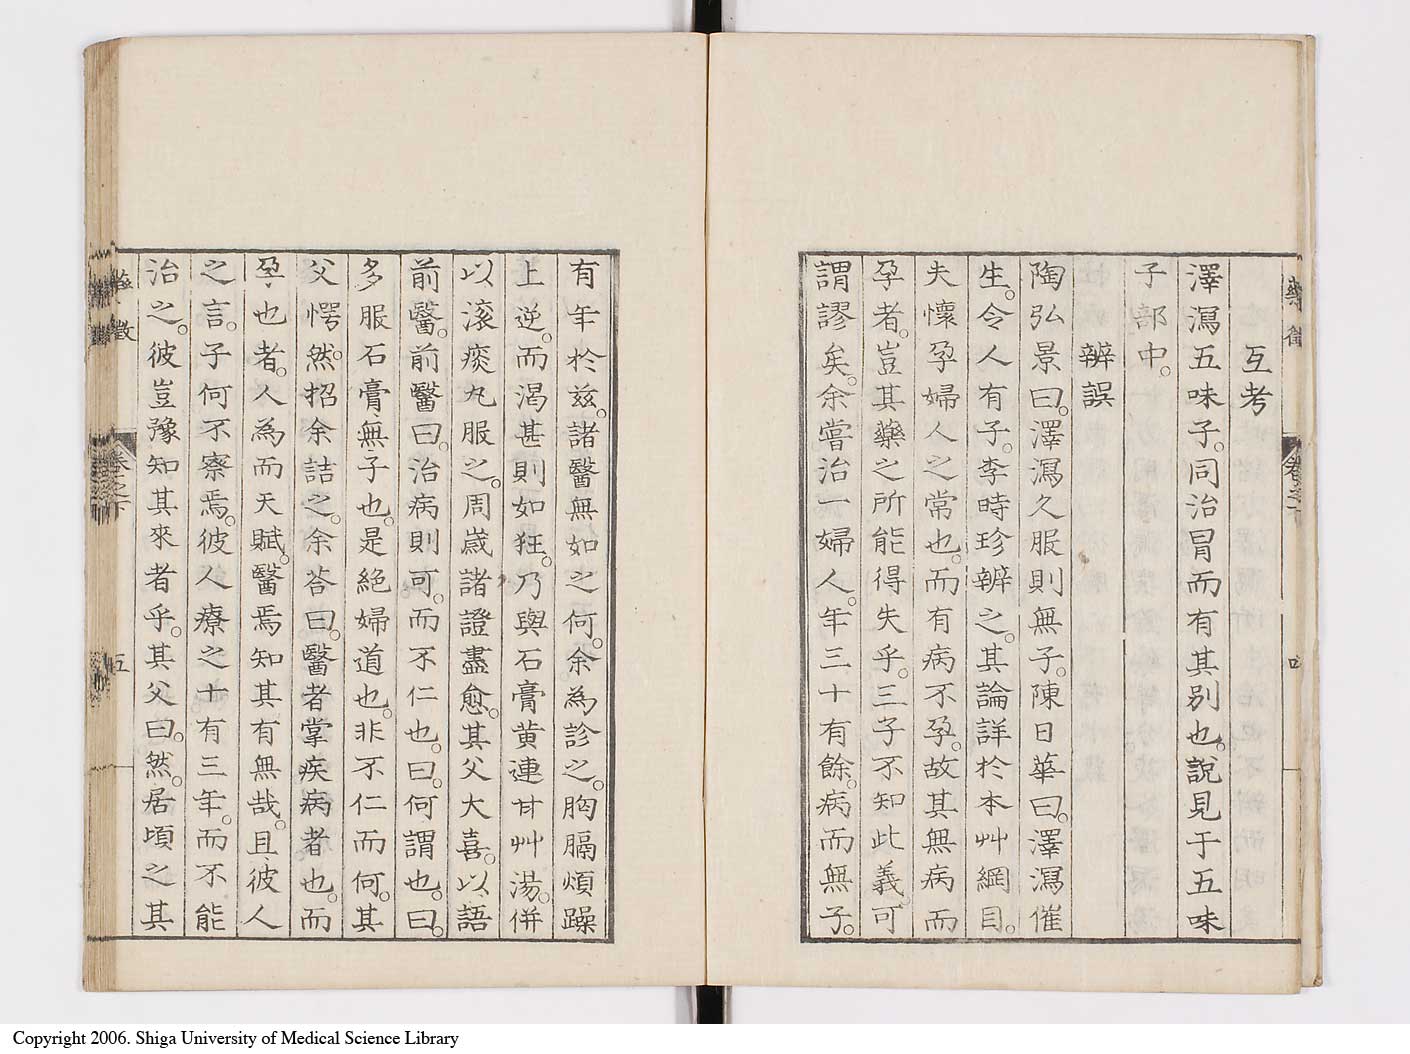 互考
澤瀉五味子。同治冒而有其別也。說見于五味
子部中。
辨誤
陶弘景曰。澤瀉久服則無子。陳日華曰。澤瀉催
生。令人有子。李時珍辨之。其論詳於本艸綱目。
夫懷孕婦人之常也。而有病不孕。故其無病而
孕者。豈其藥之所能得失乎。三子不知此義。可
謂謬矣。余嘗治一婦人。年三十有餘。病而無子。
有年於茲。諸醫無如之何。余為診之。胸膈煩躁
上逆。而渴甚則如狂。乃與石膏黃連甘艸湯。併
以滾痰丸服之。周歲諸證盡愈。其父大喜。以語
前醫。前醫曰。治病則可。而不仁也。曰。何謂也。曰。
多服石膏無子也。是絕婦道也。非不仁而何。其
父愕然。招余詰之。余荅曰。醫者掌疾病者也。而
孕也者。人為而天賦。醫焉知其有無哉。且彼人
之言。子何不察焉。彼人療之十有三年。而不能
治之。彼豈豫知其來者乎。其父曰。然。居頃之其
藥徵
卷之下
五
Copyright 2006. Shiga University of Medical Science Library